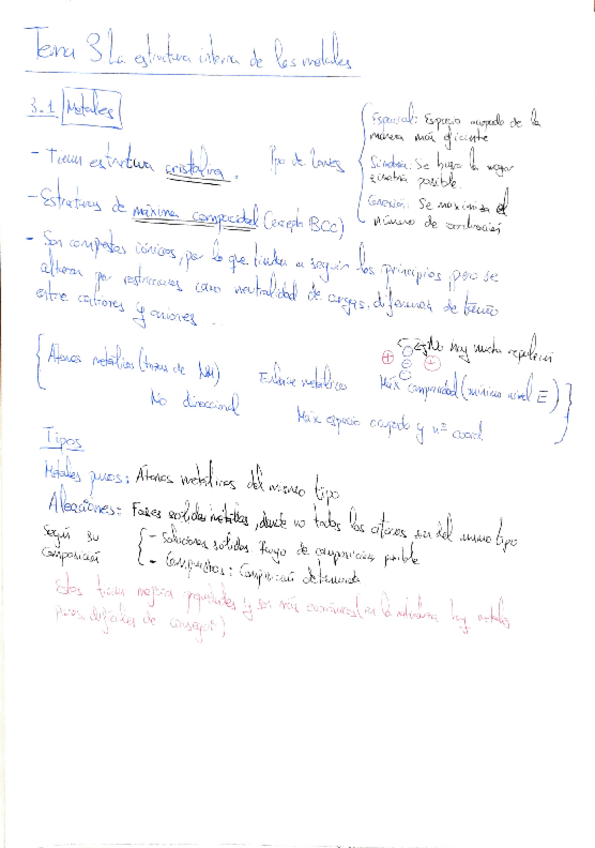 Tema 3 La estructura interna de los metales
3.1 Metales
- Tienen estructura cristalina.
Ppo de Laves
Espacial: Espacio ocupado de la
manera más eficiente
Simetría: Se busca la mayor
simetría posible.
Conexión: Se maximiza el
número de coordinación
- Estructuras de máxima compacidad (excepto BCC)
- Son compuestos iónicos, por lo que tienden a seguir los principios, pero se
alteran por restricciones como neutralidad de cargas, diferencia de tamaño
entre cationes y aniones ...
muy mucha repulsión
Átomos metálicos
Enlace metálicos
Máx compacidad (mínimo nivel E)
No direccional
Máx espacio ocupado y nº coord
Tipos
Metales puros: Átomos metálicos del mismo tipo
Aleaciones: Fases solidas metálicas, donde no todos los átomos son del mismo tipo
Según su
composición
- Soluciones sólidas: Rango de composición posible
- Compuestos: Composición determinada
Estos tienen mejores propiedades y son más económicos (en la naturaleza hay metales
puros difíciles de conseguir)